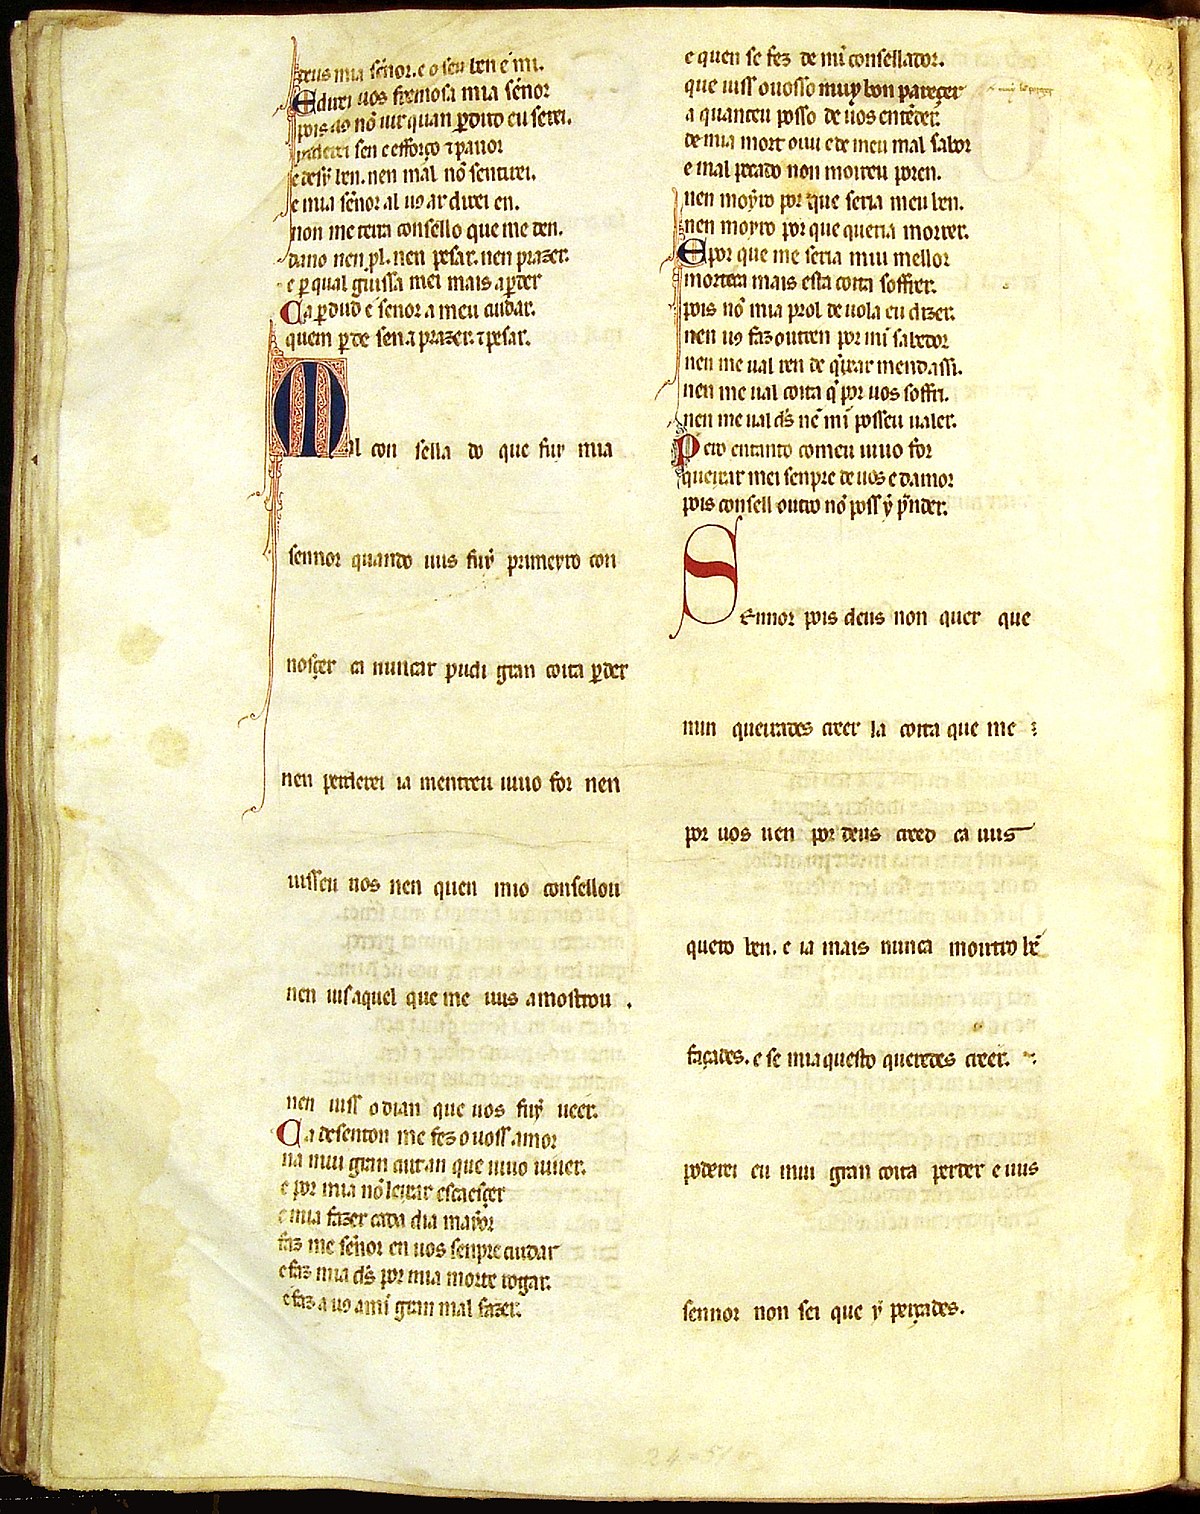 deus mia señor. e o seu ben e mi.
E direi uos fremosa mia señor
pois uꝯ nō uir quan ꝑdudo eu serei.
ꝑderei sen e efforço ⁊ pauor
e desẏ ben. nen mal nō sentirei.
e mia señor al uꝯ ar direi en.
non me terra consello que me den.
dano nen ꝓl. nen pesar. nen prazer.
e ꝑ qual guissa mei mais a ꝑder
Ca ꝑdud e senor a meu cuidar.
quem ꝑde sen ⁊ prazer. ⁊ pesar.
Mal con sella do que fuy mia
sennor quando uus fuẏ primeyro con
nosçer ca nuncar pudi gran coita ꝑder
nen perderei ia mentreu uiuo for nen
uisseu uos nen quen mio consellou
nen uisaquel que me uus amostrou .
nen uiss o dian que uos fuẏ ueer.
Ca desenton me fez o uoss amor
na mui gran coitan que uiuo uiuer.
e por mia nō leixar escaesçer
e mia fazer cada dia mayor
faz me señor en uos senpre cuidar
e faz mia ds̄ por mia morte rogar.
e faz a uꝯ a mī gran mal fazer.
e quen se fez de mī consellador.
que uiss o uosso muy bon pareçer
a quanteu posso de uos entēder.
de mia mort ouu e de meu mal sabor
e mal pecado non moireu poren.
nen moyro por que seria meu ben.
nen moyro por que queria morrer.
E por que me seria mui mellor
morte ca mais esta coita soffrer.
pois nō mia prol de uola eu dizer.
nen uꝯ faz outren por mī sabedor
nen me ual ren de q̄ixar mend assi.
nen me ual coita q̄ por uos soffri.
nen me ual ds̄ nē mī posseu ualer.
Pero entanto com eu uiuo for
queixar mei senpre de uos e damor
pois consell outro nō poss ẏ p̄nder.
Sennor pois deus non quer que
mun queirades creer la coita que me
por uos uen por deus creed ca uus
quero ben. e ia mais nunca moirtro bē
façades. e se miaquesto queredes creer.
poderei eu mui gran coita perder e uus
sennor non sei que ẏ perçades.